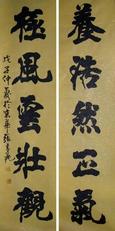 養浩然正氣
極風雲壯觀
戊子仲夏於京華